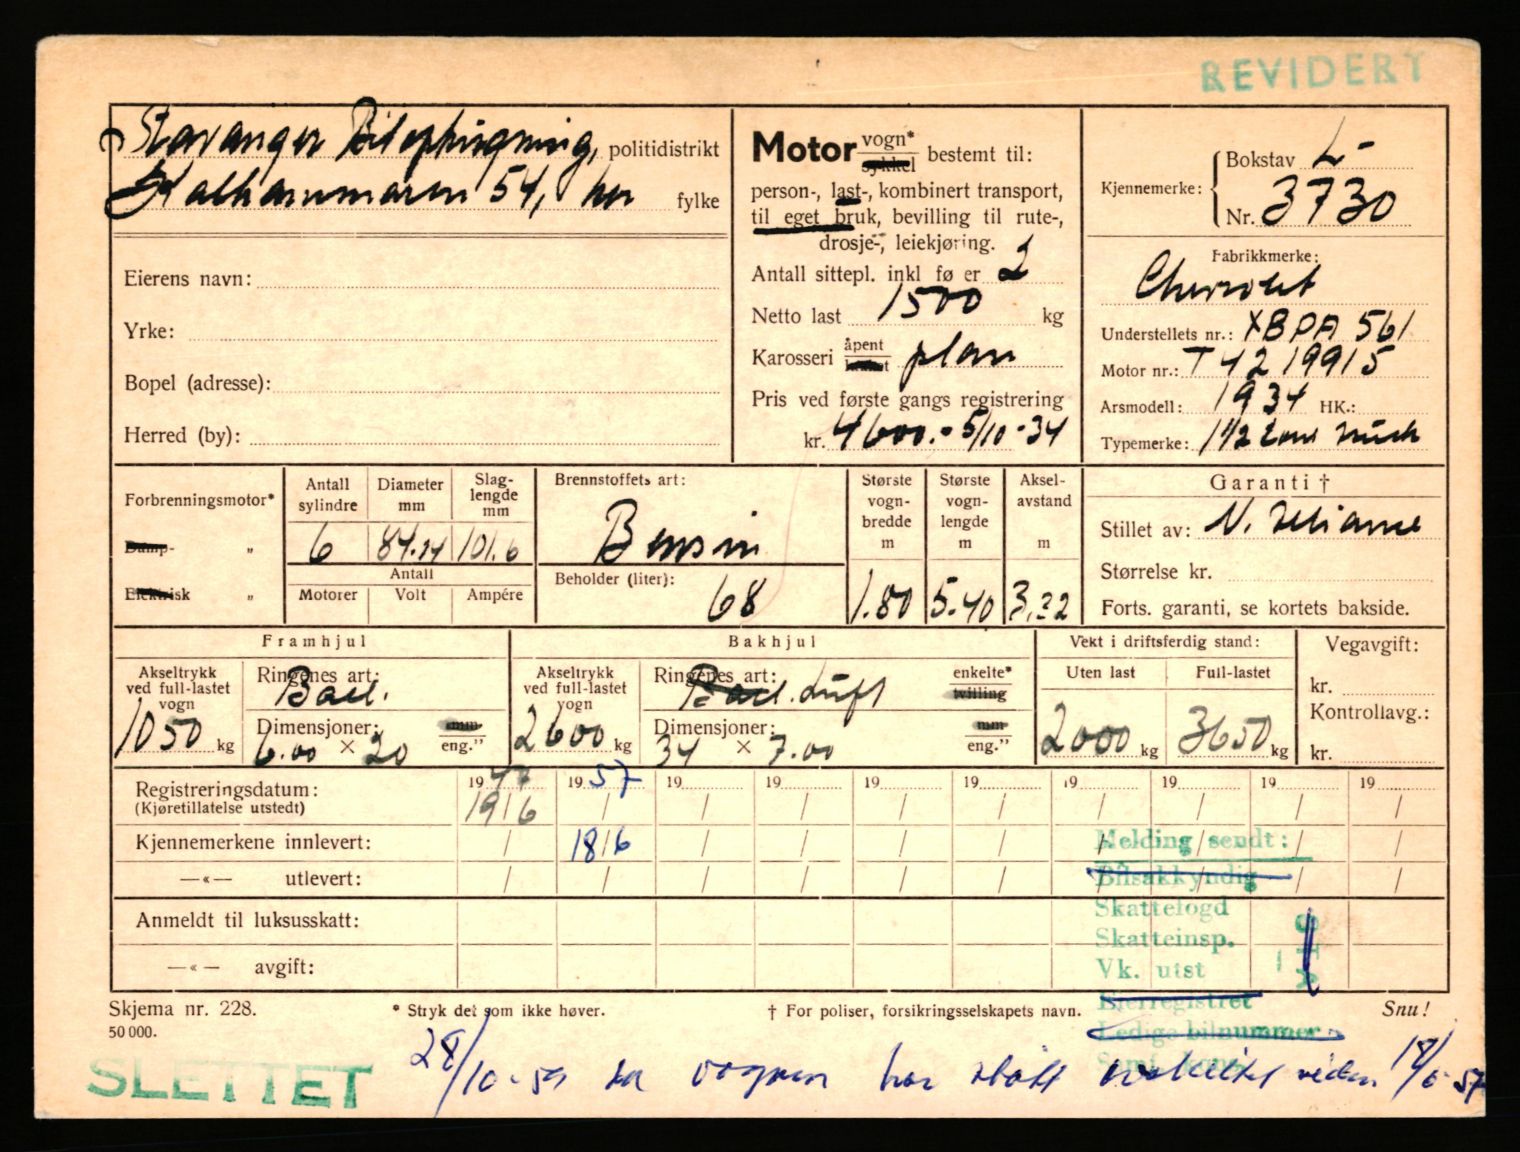 REVIDERT
Stavanger Bilophugning, politidistrikt
Kalhammaren 54, her fylke
Eierens navn:
Yrke:
Bopel (adresse):
Herred (by):
Motor vogn* sykkel bestemt til:
person-, last-, kombinert transport,
til eget bruk, bevilling til rute-,
drosje-, leiekjøring.
Antall sittepl. inkl fø er 2
Netto last 1500 kg
Karosseri åpent plan
Pris ved første gangs registrering
kr. 4600.- 5/10-34
Kjennemerke: Bokstav L-
Nr. 3730
Fabrikkmerke:
Chevrolet
Understellets nr.: XBPA 561
Motor nr.: T 4219915
Årsmodell: 1934 HK.:
Typemerke: 1 1/2 tons truck
Forbrenningsmotor*
Damp- "
Elektrisk "
Antall sylindre 6
Diameter mm 84.14
Slaglengde mm 101.6
Antall
Motorer Volt Ampére
Brennstoffets art:
Bensin
Beholder (liter):
68
Største vogn-bredde m 1.80
Største vogn-lengde m 5.40
Aksel-avstand m 3.32
Garanti †
Stillet av:
Størrelse kr.
Forts. garanti, se kortets bakside.
Framhjul
Akseltrykk ved full-lastet vogn 1050 kg
Ringenes art: Ball.
Dimensjoner: mm
6.00 × 20 eng."
Bakhjul
Akseltrykk ved full-lastet vogn 2600 kg
Ringenes art: Ball. Luft
enkelte*
tvilling
Dimensjoner: mm
34 × 7.00 eng."
Vekt i driftsferdig stand:
Uten last Full-lastet
2000 kg 3650 kg
Vegavgift:
kr.
Kontrollavg.:
kr.
Registreringsdatum: 1947 1957 19 19 19 19 19 19 19 19
(Kjøretillatelse utstedt) 19/6 / / / / / / / / /
Kjennemerkene innlevert: / 18/6 / / / / / / / /
—«— utlevert: / / / / / / / / / /
Anmeldt til luksusskatt:
—«— avgift:
Melding sendt:
Bilsakkyndig
Skattefogd
Skatteinsp.
Vk. utst
Eierregistret
Ledige bilnummer
Skjema nr. 228.
50 000.
* Stryk det som ikke høver.
† For poliser, forsikringsselskapets navn.
Snu!
SLETTET
28/10-59 da vognen har stått avskiltet siden 18/6-57